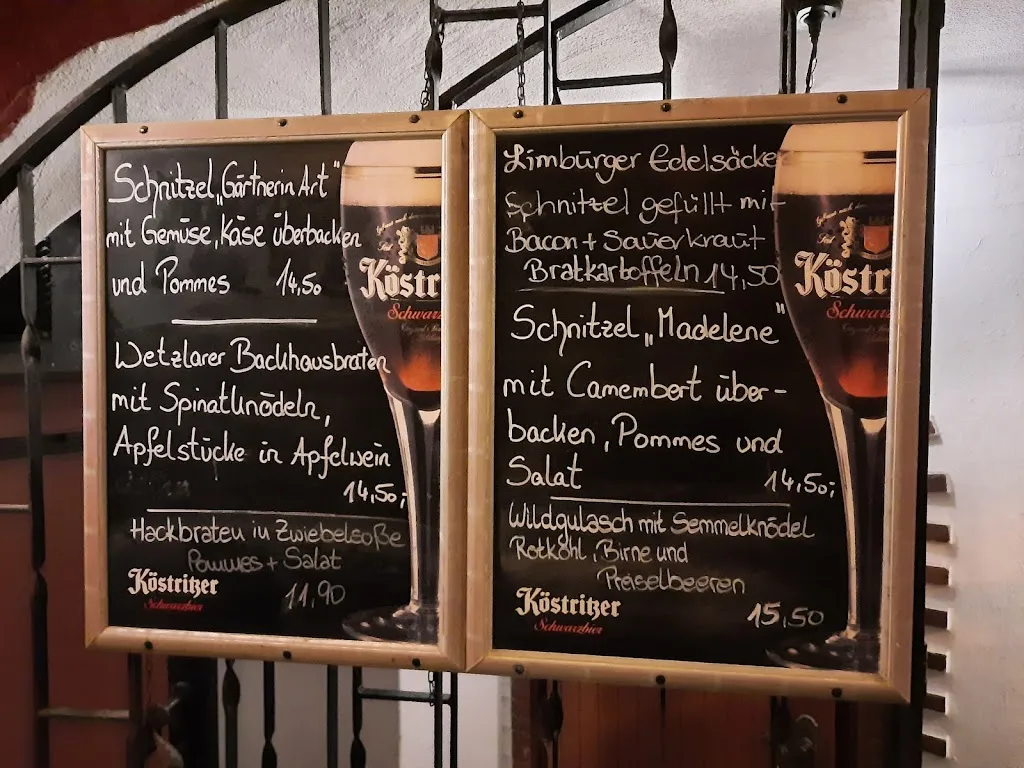 Schnitzel „Gärtnerin Art"
mit Gemüse, Käse überbacken
und Pommes 14,50
Wetzlarer Backhausbraten
mit Spinatknödeln,
Apfelstücke in Apfelwein
14,50,;
Hackbraten in Zwiebelsoße
Pommes + Salat
11,90
Köstritzer
Schwarzbier
Köstr
Schwarz
Limburger Edelsäcker
Schnitzel gefüllt mit
Bacon + Sauerkraut
Bratkartoffeln 14,50
Schnitzel „Madelene"
mit Camembert über-
backen, Pommes und
Salat 14,50,;
Wildgulasch mit Semmelknödel
Rotkohl, Birne und
Preiselbeeren
15,50
Köstritzer
Schwarzbier
Köstri
Schwarz